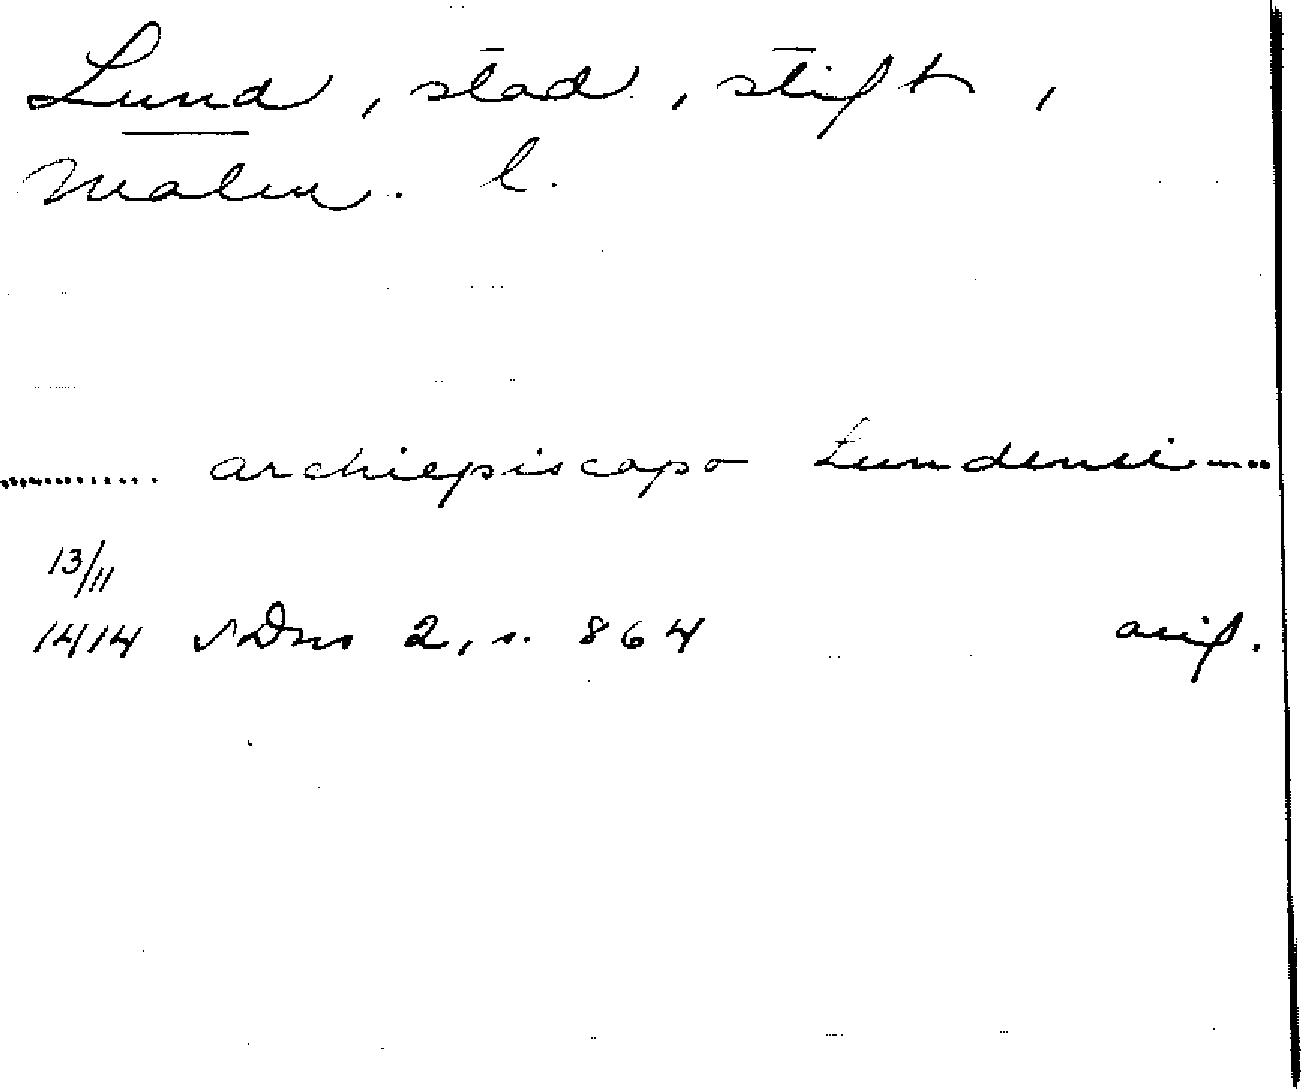 Lund, stad, stift,
Malm. l.
........... archiepiscopo Lundensi ....
13/11
1414 SDns 2, s. 864 avif.